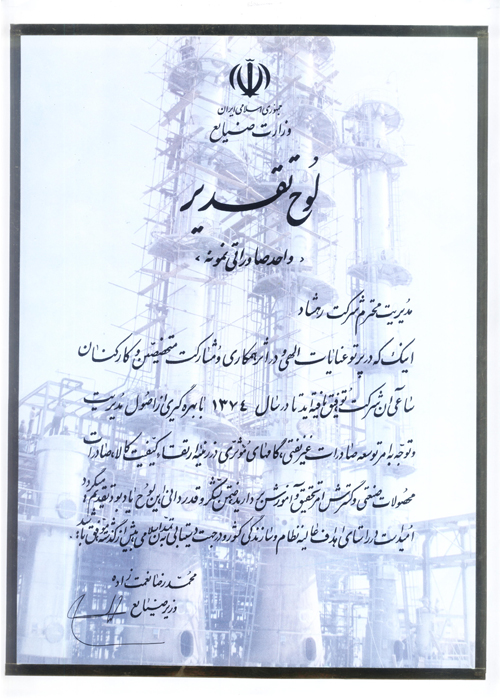 جمهوری اسلامی ایران
وزارت صنایع
لوح تقدیر
« واحد صادراتی نمونه »
مدیریت محترم شرکت رهشاد
اینک که در پرتو عنایات الهی و در اثر همکاری و مشارکت متخصصین و کارکنان
ساعی آن شرکت توفیق یافته‌اید تا در سال ۱۳۷۴ با بهره گیری از اصول مدیریت
و توجه به امر توسعه صادرات غیر نفتی، گامهای مؤثری در زمینه ارتقاء کیفیت کالا، صادرات
محصولات صنعتی و گسترش امر تحقیق و آموزش بردارید ضمن تشکر و قدردانی این لوح یادبود تقدیم میگردد
امید است در راستای اهداف عالیه نظام و سازندگی کشور و در جهت دستیابی به تمدن اسلامی بیش از گذشته موفق باشید.
محمدرضا نعمت زاده
وزیر صنایع